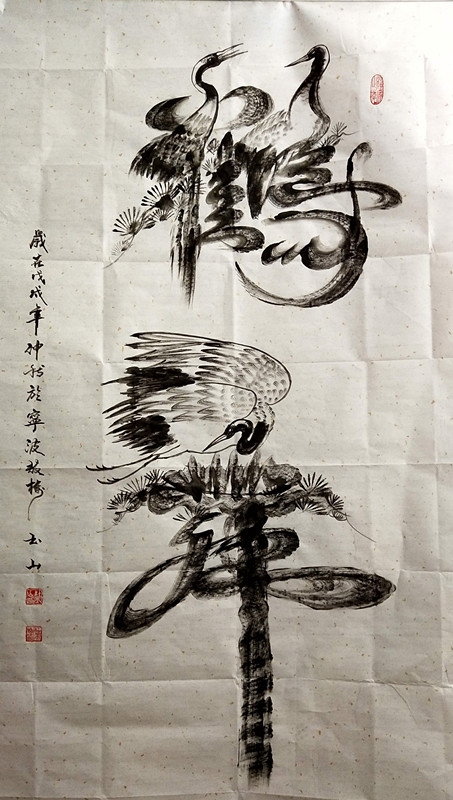 鶴舞
歲在戊戌年仲秋於寧波鼓樓 玉山